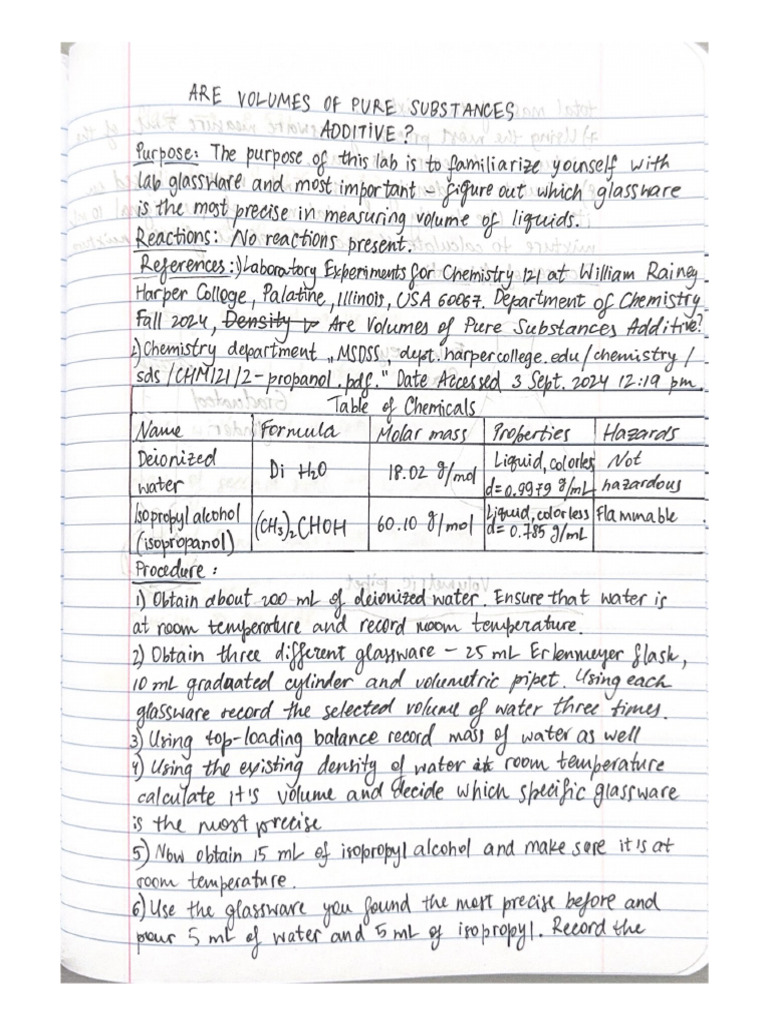 ARE VOLUMES OF PURE SUBSTANCES
ADDITIVE?
Purpose: The purpose of this lab is to familiarize yourself with
lab glassware and most important - figure out which glassware
is the most precise in measuring volume of liquids.
Reactions: No reactions present.
References: 1) Laboratory Experiments for Chemistry 121 at William Rainey
Harper College, Palatine, Illinois, USA 60067. Department of Chemistry
Fall 2024, Density Are Volumes of Pure Substances Additive?
2) Chemistry department „MSDSS, dept.harpercollege.edu/chemistry/
sds/CHM121/2-propanol.pdf." Date Accessed 3 Sept. 2024 12:19 pm.
Table of Chemicals
Name Formula Molar mass Properties Hazards
Deionized water Di H2O 18.02 g/mol Liquid, colorles d=0.9979 g/mL Not hazardous
Isopropyl alcohol (isopropanol) (CH3)2CHOH 60.10 g/mol Liquid, colorless d=0.785 g/mL Flammable
Procedure:
1) Obtain about 200 mL of deionized water. Ensure that water is
at room temperature and record room temperature.
2) Obtain three different glassware - 25 mL Erlenmeyer flask,
10 mL graduated cylinder and volumetric pipet. Using each
glassware record the selected volume of water three times.
3) Using top-loading balance record mass of water as well
4) Using the existing density of water at room temperature
calculate it's volume and decide which specific glassware
is the most precise
5) Now obtain 15 mL of isopropyl alcohol and make sure it is at
room temperature.
6) Use the glassware you found the most precise before and
pour 5 mL of water and 5 mL of isopropyl. Record the